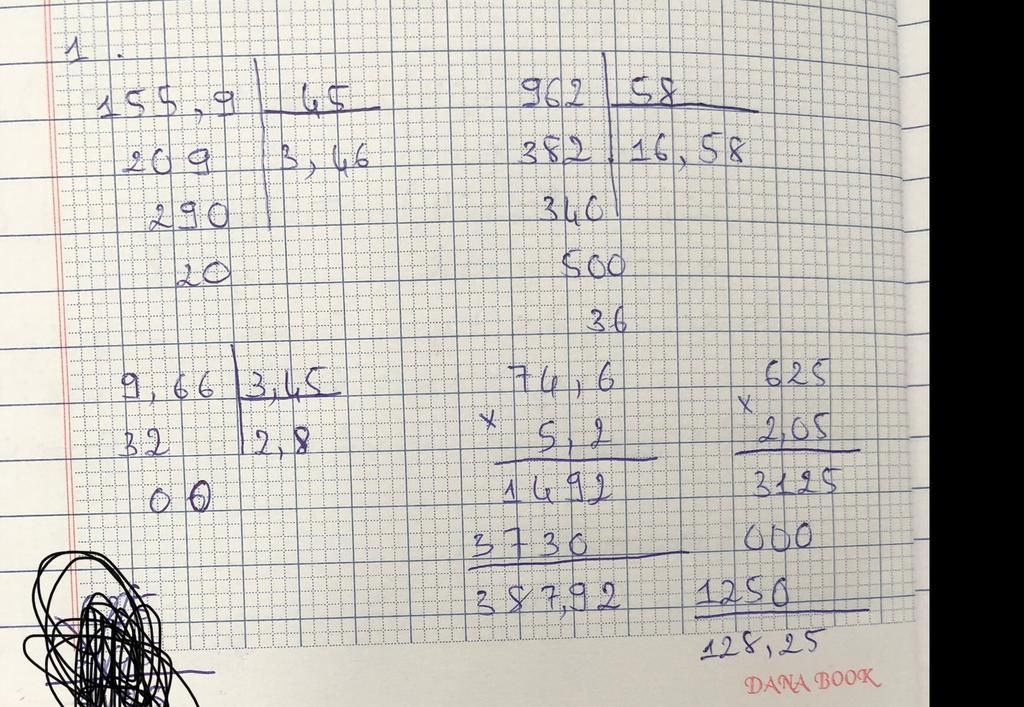 1.
155,9 45
209 3,46
290
20
962 58
382 16,58
340
500
36
9,66 3,45
32 2,8
00
74,6
x 5,2
1492
3730
387,92
625
x 2,05
3125
000
1250
128,25
DANA BOOK